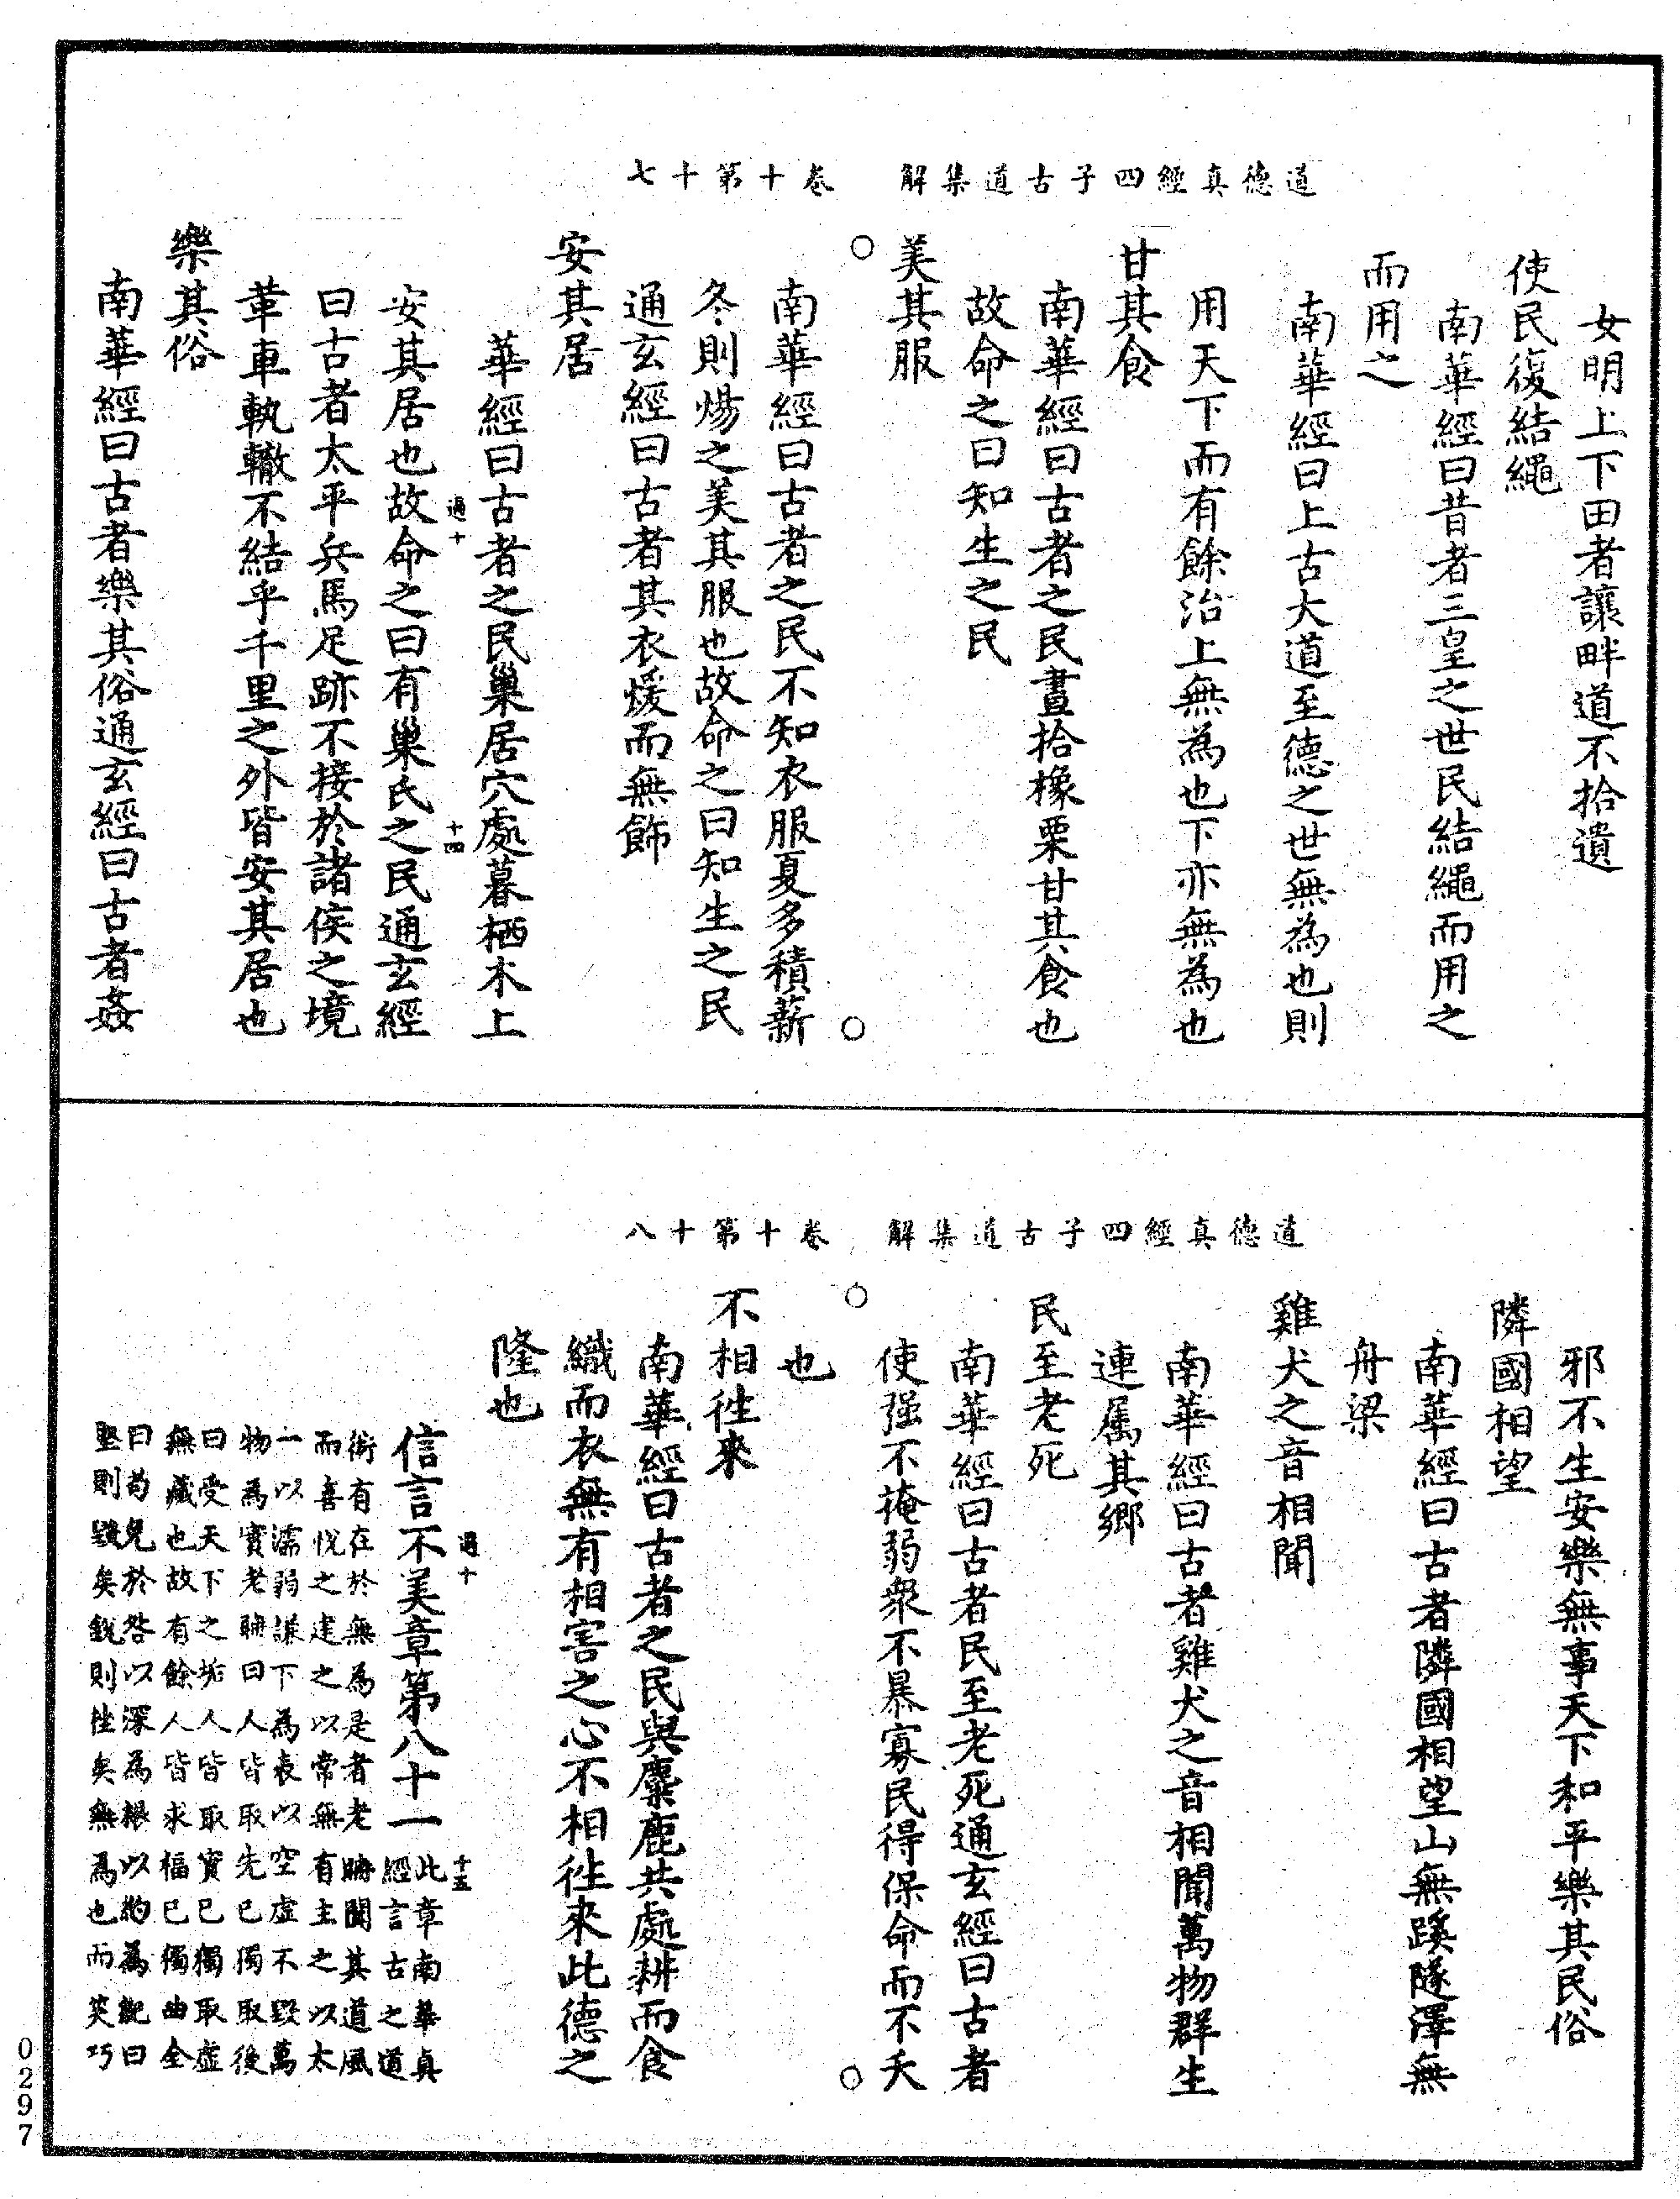 道德真經四子古道集解　卷十第十七
女明上下田者讓畔道不拾遺
使民復結繩
南華經曰昔者三皇之世民結繩而用之
而用之
南華經曰上古大道至德之世無為也則
用天下而有餘治上無為也下亦無為也
甘其食
南華經曰古者之民晝拾橡栗甘其食也
故命之曰知生之民
美其服
○　○
南華經曰古者之民不知衣服夏多積薪
冬則煬之美其服也故命之曰知生之民
通玄經曰古者其衣煖而無飾
安其居
華經曰古者之民巢居穴處暮栖木上
過十　十四
安其居也故命之曰有巢氏之民通玄經
曰古者太平兵馬足跡不接於諸侯之境
革車軌轍不結乎千里之外皆安其居也
樂其俗
南華經曰古者樂其俗通玄經曰古者姦
道德真經四子古道集解　卷十第十八
邪不生安樂無事天下和平樂其民俗
隣國相望
南華經曰古者隣國相望山無蹊隧澤無
舟梁
雞犬之音相聞
南華經曰古者雞犬之音相聞萬物群生
連属其鄉
民至老死
南華經曰古者民至老死通玄經曰古者
使强不掩弱衆不暴寡民得保命而不夭
○　○
也
不相徃來
南華經曰古者之民與麋鹿共處耕而食
織而衣無有相害之心不相徃來此德之
隆也
過十　十五
信言不美章第八十一此章南華真
經言古之道
術有在於無為是者老聃聞其道風
而喜悅之建之以常無有主之以太
一以濡弱謙下為表以空虛不毀萬
物為實老聃曰人皆取先已獨取後
曰受天下之垢人皆取實已獨取虛
無藏也故有餘人皆求福已獨曲全
曰苟免於咎以深為根以約為紀曰
堅則毀矣銳則挫矣無為也而笑巧
0297